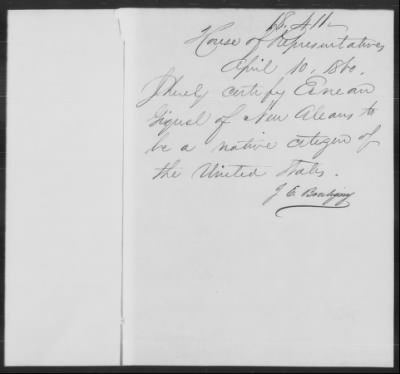 House of Representatives
April 10, 1860.
I hereby certify
of New Orleans to
be a native citizen of
the United States.
J E Bouligny